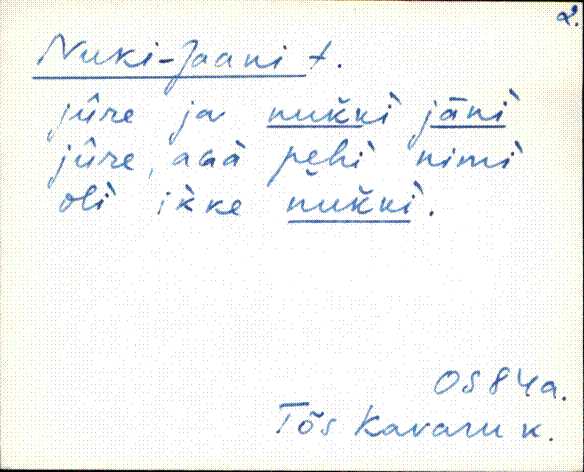 2.
Nuki-Jaani t.
jûre ja nuk̆ki̇̀ jāni̇̀
jûre, aǥà pehì nimì
olì ìkke nuk̆kì.
OS 84a.
Tõs Kavaru k.